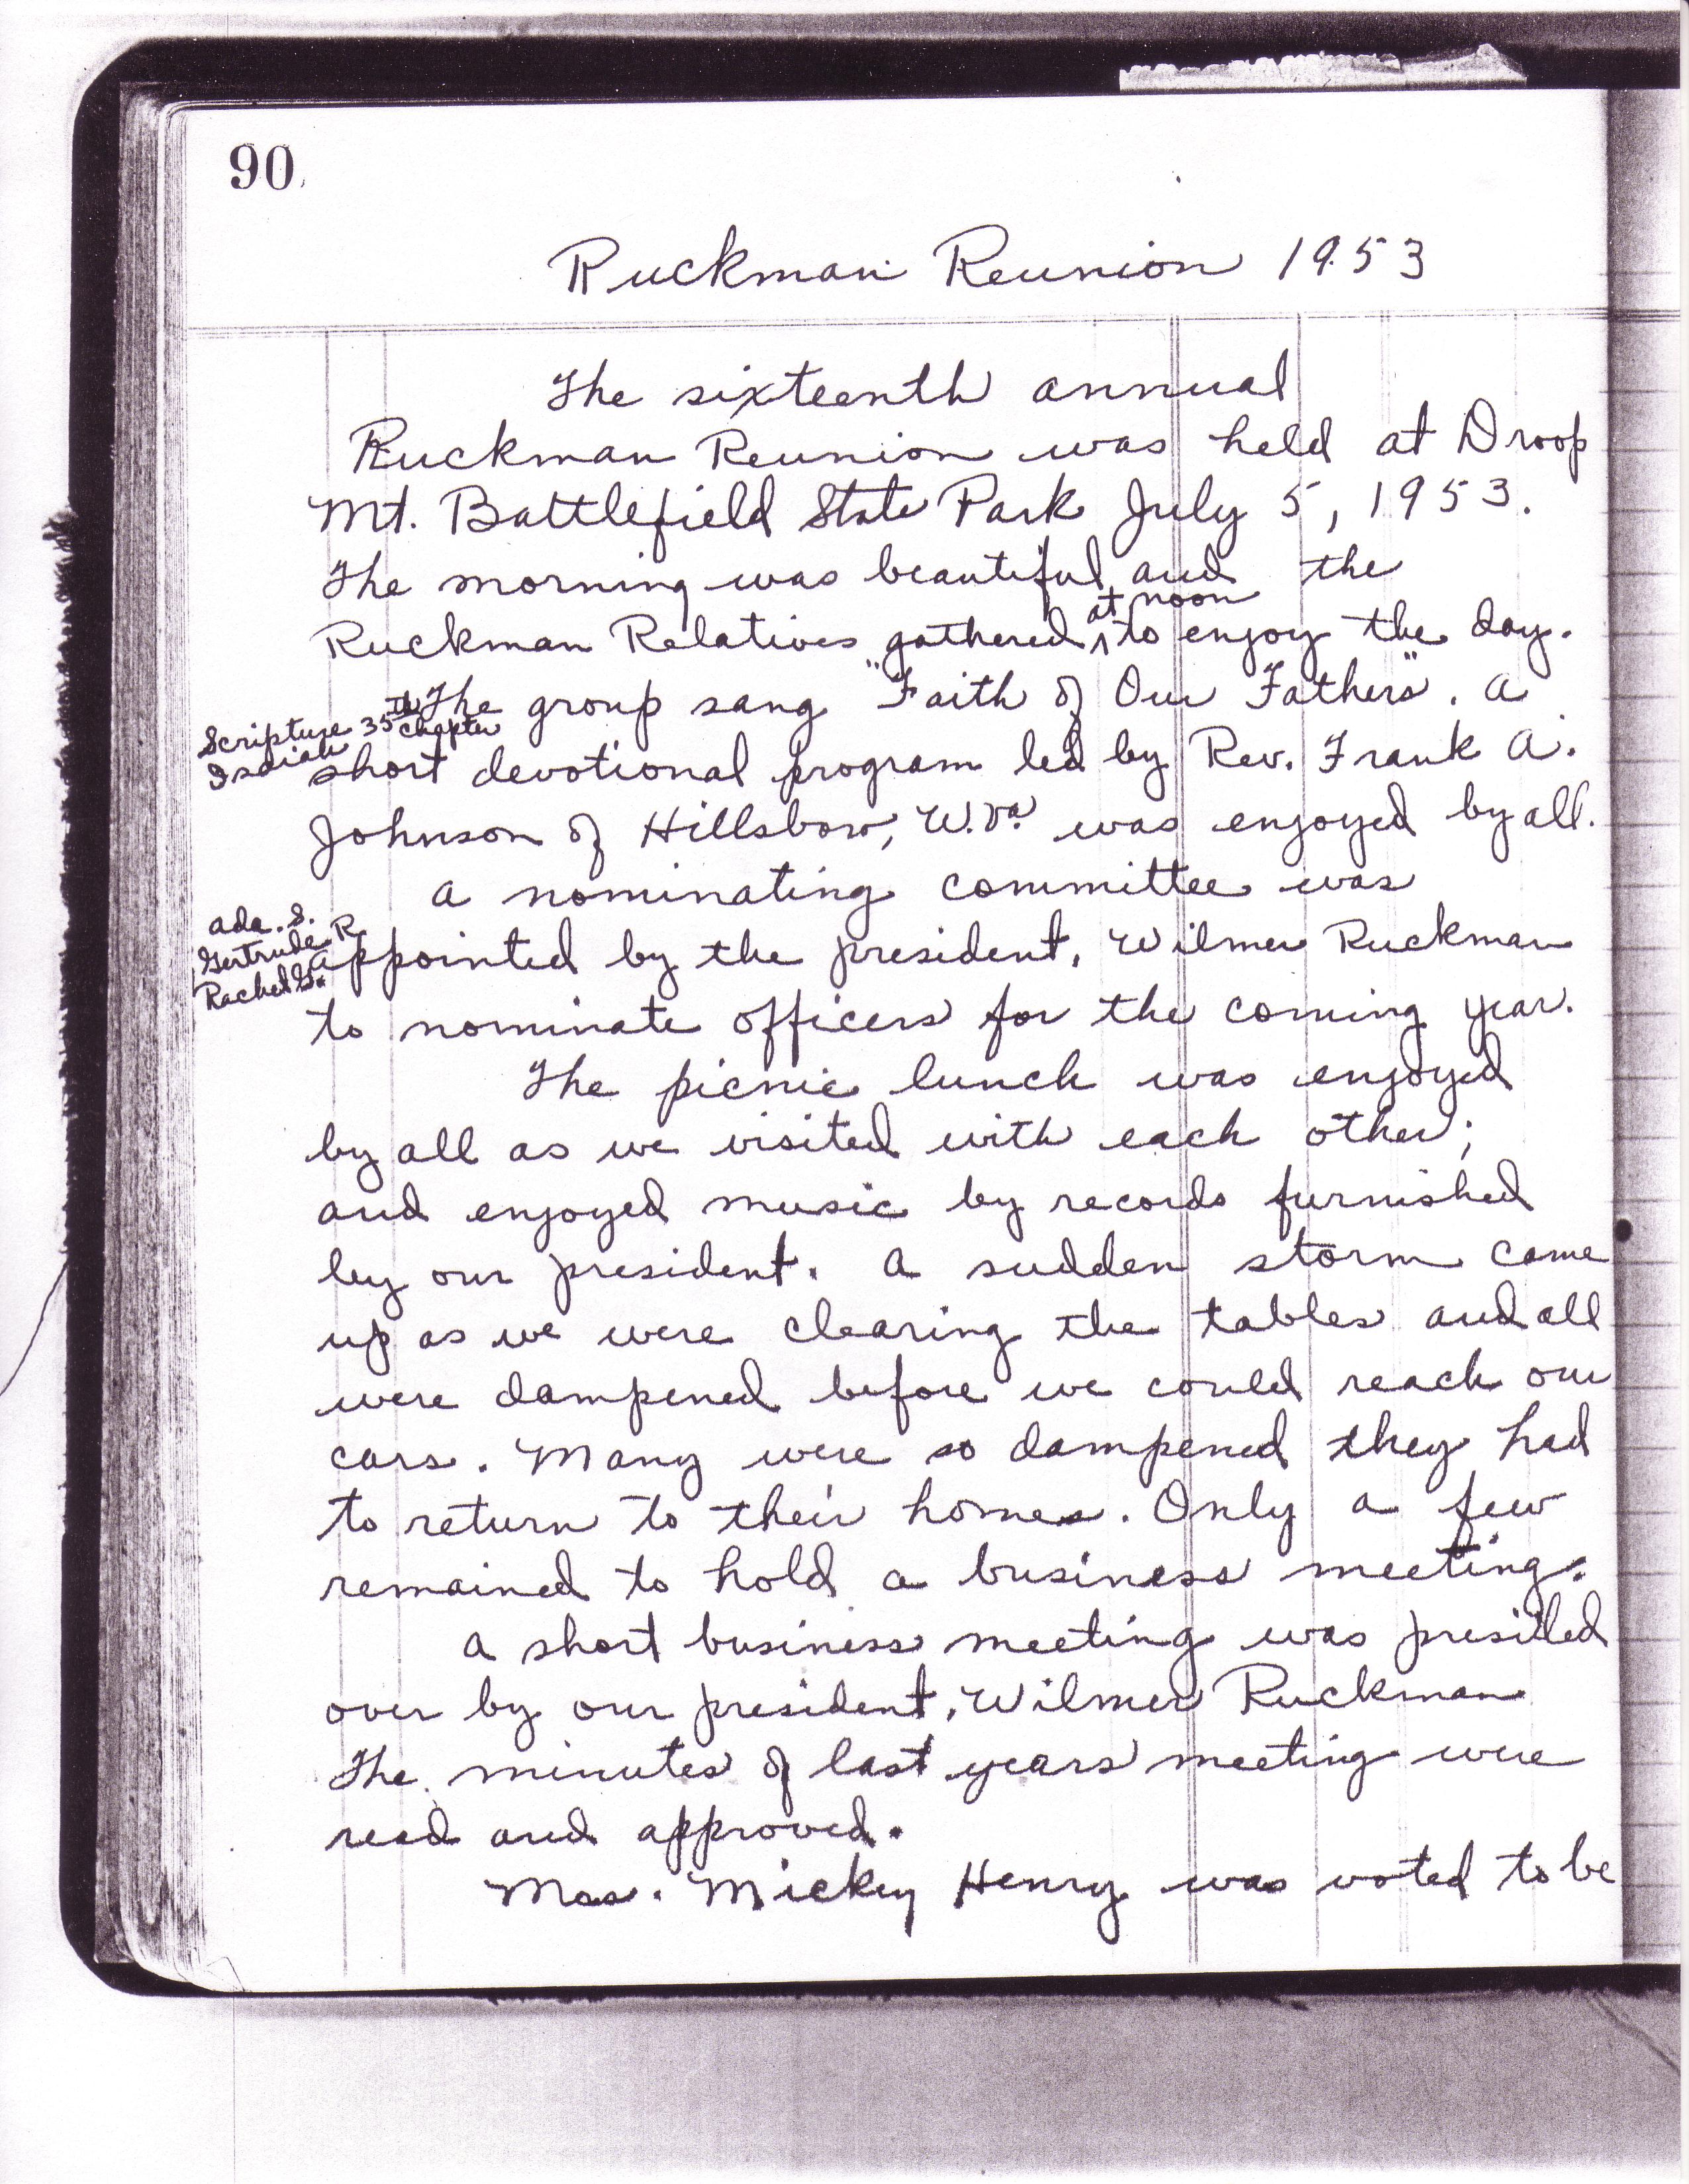 90
Ruckman Reunion 1953
The sixteenth annual
Ruckman Reunion was held at Droop
Mt. Battlefield State Park July 5, 1953.
The morning was beautiful and the
at noon
Ruckman Relatives gathered ^ to enjoy the day.
The group sang "Faith of Our Fathers". A
Scripture 35th Chapter
Isaiah
short devotional program led by Rev. Frank A.
Johnson of Hillsboro, W. Va. was enjoyed by all.
A nominating committee was
Ada. S.
Gertrude R
Rachel G.
appointed by the president, Wilmer Ruckman
to nominate officers for the coming year.
The picnic lunch was enjoyed
by all as we visited with each other;
and enjoyed music by records furnished
by our president. A sudden storm came
up as we were clearing the tables and all
were dampened before we could reach our
cars. Many were so dampened they had
to return to their homes. Only a few
remained to hold a business meeting.
A short business meeting was presided
over by our president, Wilmer Ruckman
The minutes of last years meeting were
read and approved.
Mrs. Mickey Henry was voted to be